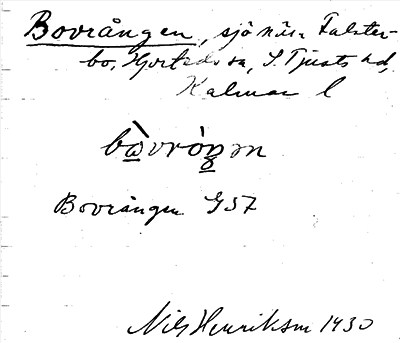 Bovrången, sjö när Falster-
bo, Hjorteds sn, S. Tjusts hd,
Kalmar l
Bovrången G57
Nils Henrikson 1930